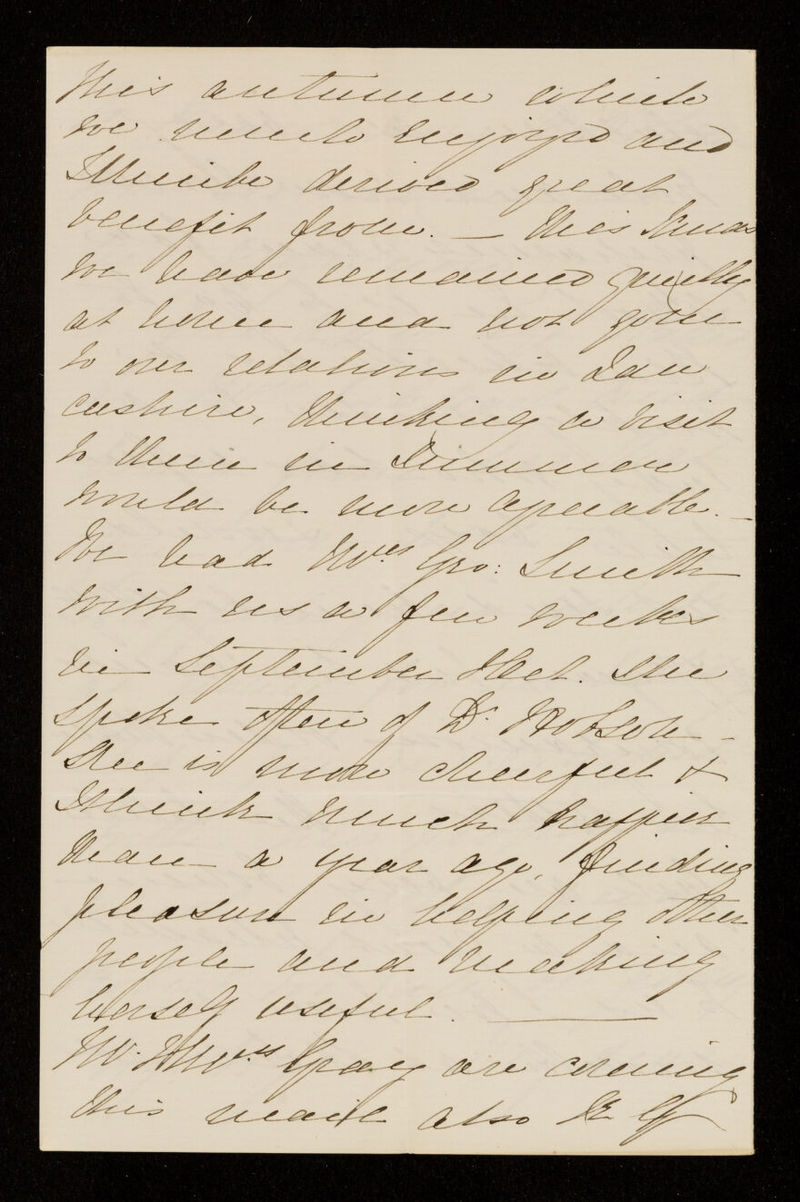 this autumn which
we much enjoyed and
I think derived great
benefit from. — This Xmas
we have remained quietly
at home and not gone
to our relations in Lan
cashire, thinking a visit
to them in Summer
would be more agreeable. —
We had Mrs. Geo: Smith
with us a few weeks
in September & Oct. She
spoke often of Dr. Hobson —
She is more cheerful &
I think much happier
than a year ago, finding
pleasure in helping other
people and making
herself useful. ———
Mr. & Mrs. Gray are coming
this mail also